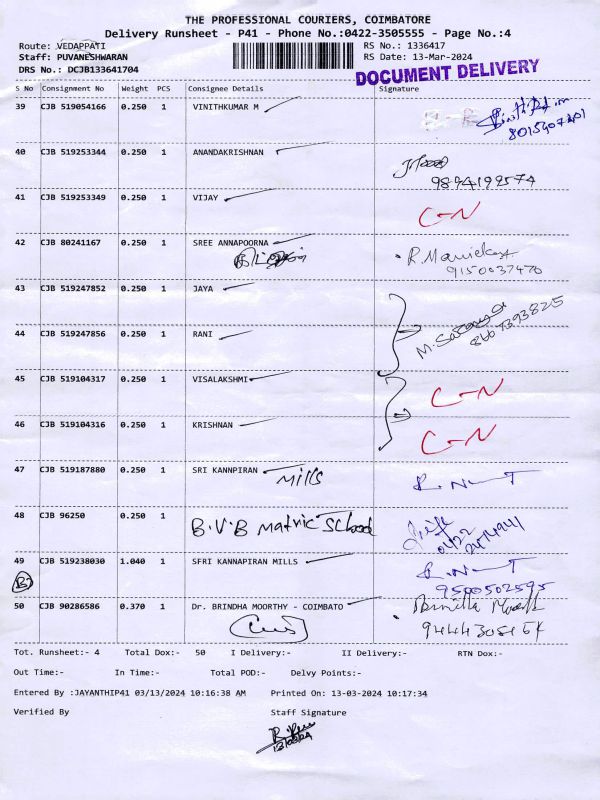 THE PROFESSIONAL COURIERS, COIMBATORE
Delivery Runsheet - P41 - Phone No.:0422-3505555 - Page No.:4
Route: VEDAPPATI
RS No.: 1336417
Staff: PUVANESHWARAN
RS Date: 13-Mar-2024
DRS No.: DCJB133641704
DOCUMENT DELIVERY
S No Consignment No Weight PCS Consignee Details Signature
39 CJB 519054166 0.250 1 VINITHKUMAR M
40 CJB 519253344 0.250 1 ANANDAKRISHNAN
9894192574
41 CJB 519253349 0.250 1 VIJAY C-N
42 CJB 80241167 0.250 1 SREE ANNAPOORNA
9150037470
43 CJB 519247852 0.250 1 JAYA
44 CJB 519247856 0.250 1 RANI
45 CJB 519104317 0.250 1 VISALAKSHMI C-N
46 CJB 519104316 0.250 1 KRISHNAN C-N
47 CJB 519187880 0.250 1 SRI KANNPIRAN
Mills
48 CJB 96250 0.250 1 B.V.B Matric School
0422
49 CJB 519238030 1.040 1 SFRI KANNAPIRAN MILLS
9500502595
50 CJB 90286586 0.370 1 Dr. BRINDHA MOORTHY - COIMBATO
Tot. Runsheet:- 4 Total Dox:- 50 I Delivery:- II Delivery:- RTN Dox:-
Out Time:- In Time:- Total POD:- Delvy Points:-
Entered By :JAYANTHIP41 03/13/2024 10:16:38 AM Printed On: 13-03-2024 10:17:34
Verified By Staff Signature